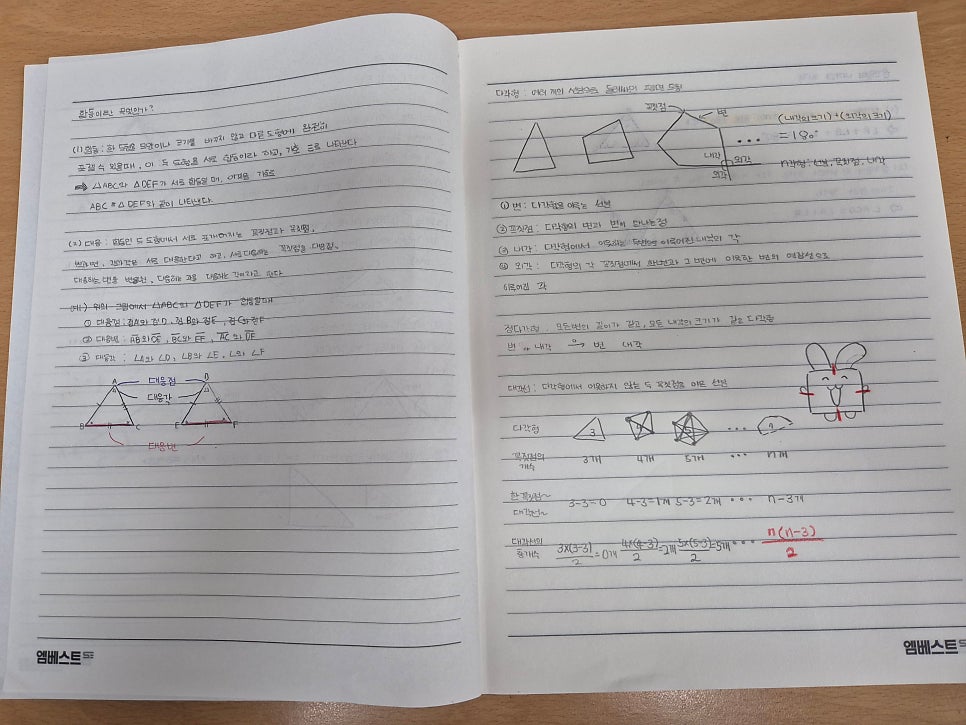 합동이란 무엇인가?
(1) 합동 : 한 도형을 모양이나 크기를 바꾸지 않고 다른 도형에 완전히
포갤 수 있을때, 이 두 도형을 서로 합동이라 하고, 기호 ≡로 나타낸다
⇒ △ABC와 △DEF가 서로 합동일 때, 이것을 기호로
ABC ≡ △DEF와 같이 나타낸다.
(2) 대응 : 합동인 두 도형에서 서로 포개어지는 꼭짓점과 꼭짓점,
변과 변, 각과 각은 서로 대응한다고 하고, 서로 대응하는 꼭짓점을 대응점,
대응하는 변을 대응변, 대응하는 각을 대응각이라고 한다
(예) 위의 그림에서 △ABC와 △DEF가 합동일때
① 대응점 : 점A와 점D, 점B와 점E, 점C와 점F
② 대응변 : AB와 DE, BC와 EF, AC와 DF
③ 대응각 : ∠A와 ∠D, ∠B와 ∠E, ∠C와 ∠F
A 대응점 D
대응각
B C E F
대응변
엠베스트
다각형 : 여러 개의 선분으로 둘러싸인 평면 도형
꼭짓점 변
(내각의 크기) + (외각의 크기)
= 180°
내각 외각
외각
n각형 : 선분, 꼭짓점, 내각
① 변 : 다각형을 이루는 선분
② 꼭짓점 : 다각형의 변과 변이 만나는 점
③ 내각 : 다각형에서 이웃하는 두변으로 이루어진 내부의 각
④ 외각 : 다각형의 각 꼭짓점에서 한 변과 그 변에 이웃한 변의 연장선으로
이루어진 각
정다각형 : 모든 변의 길이가 같고, 모든 내각의 크기가 같은 다각형
변 내각 변 내각
대각선 : 다각형에서 이웃하지 않는 두 꼭짓점을 이은 선분
다각형 3 4 5 ··· n
꼭짓점의
개수 3개 4개 5개 ··· n개
한 꼭짓점~
대각선~ 3-3=0 4-3=1개 5-3=2개 ··· n-3개
대각선의
총 개수 3×(3-3)/2=0개 4×(4-3)/2=2개 5×(5-3)/2=5개 ··· n(n-3)/2
엠베스트